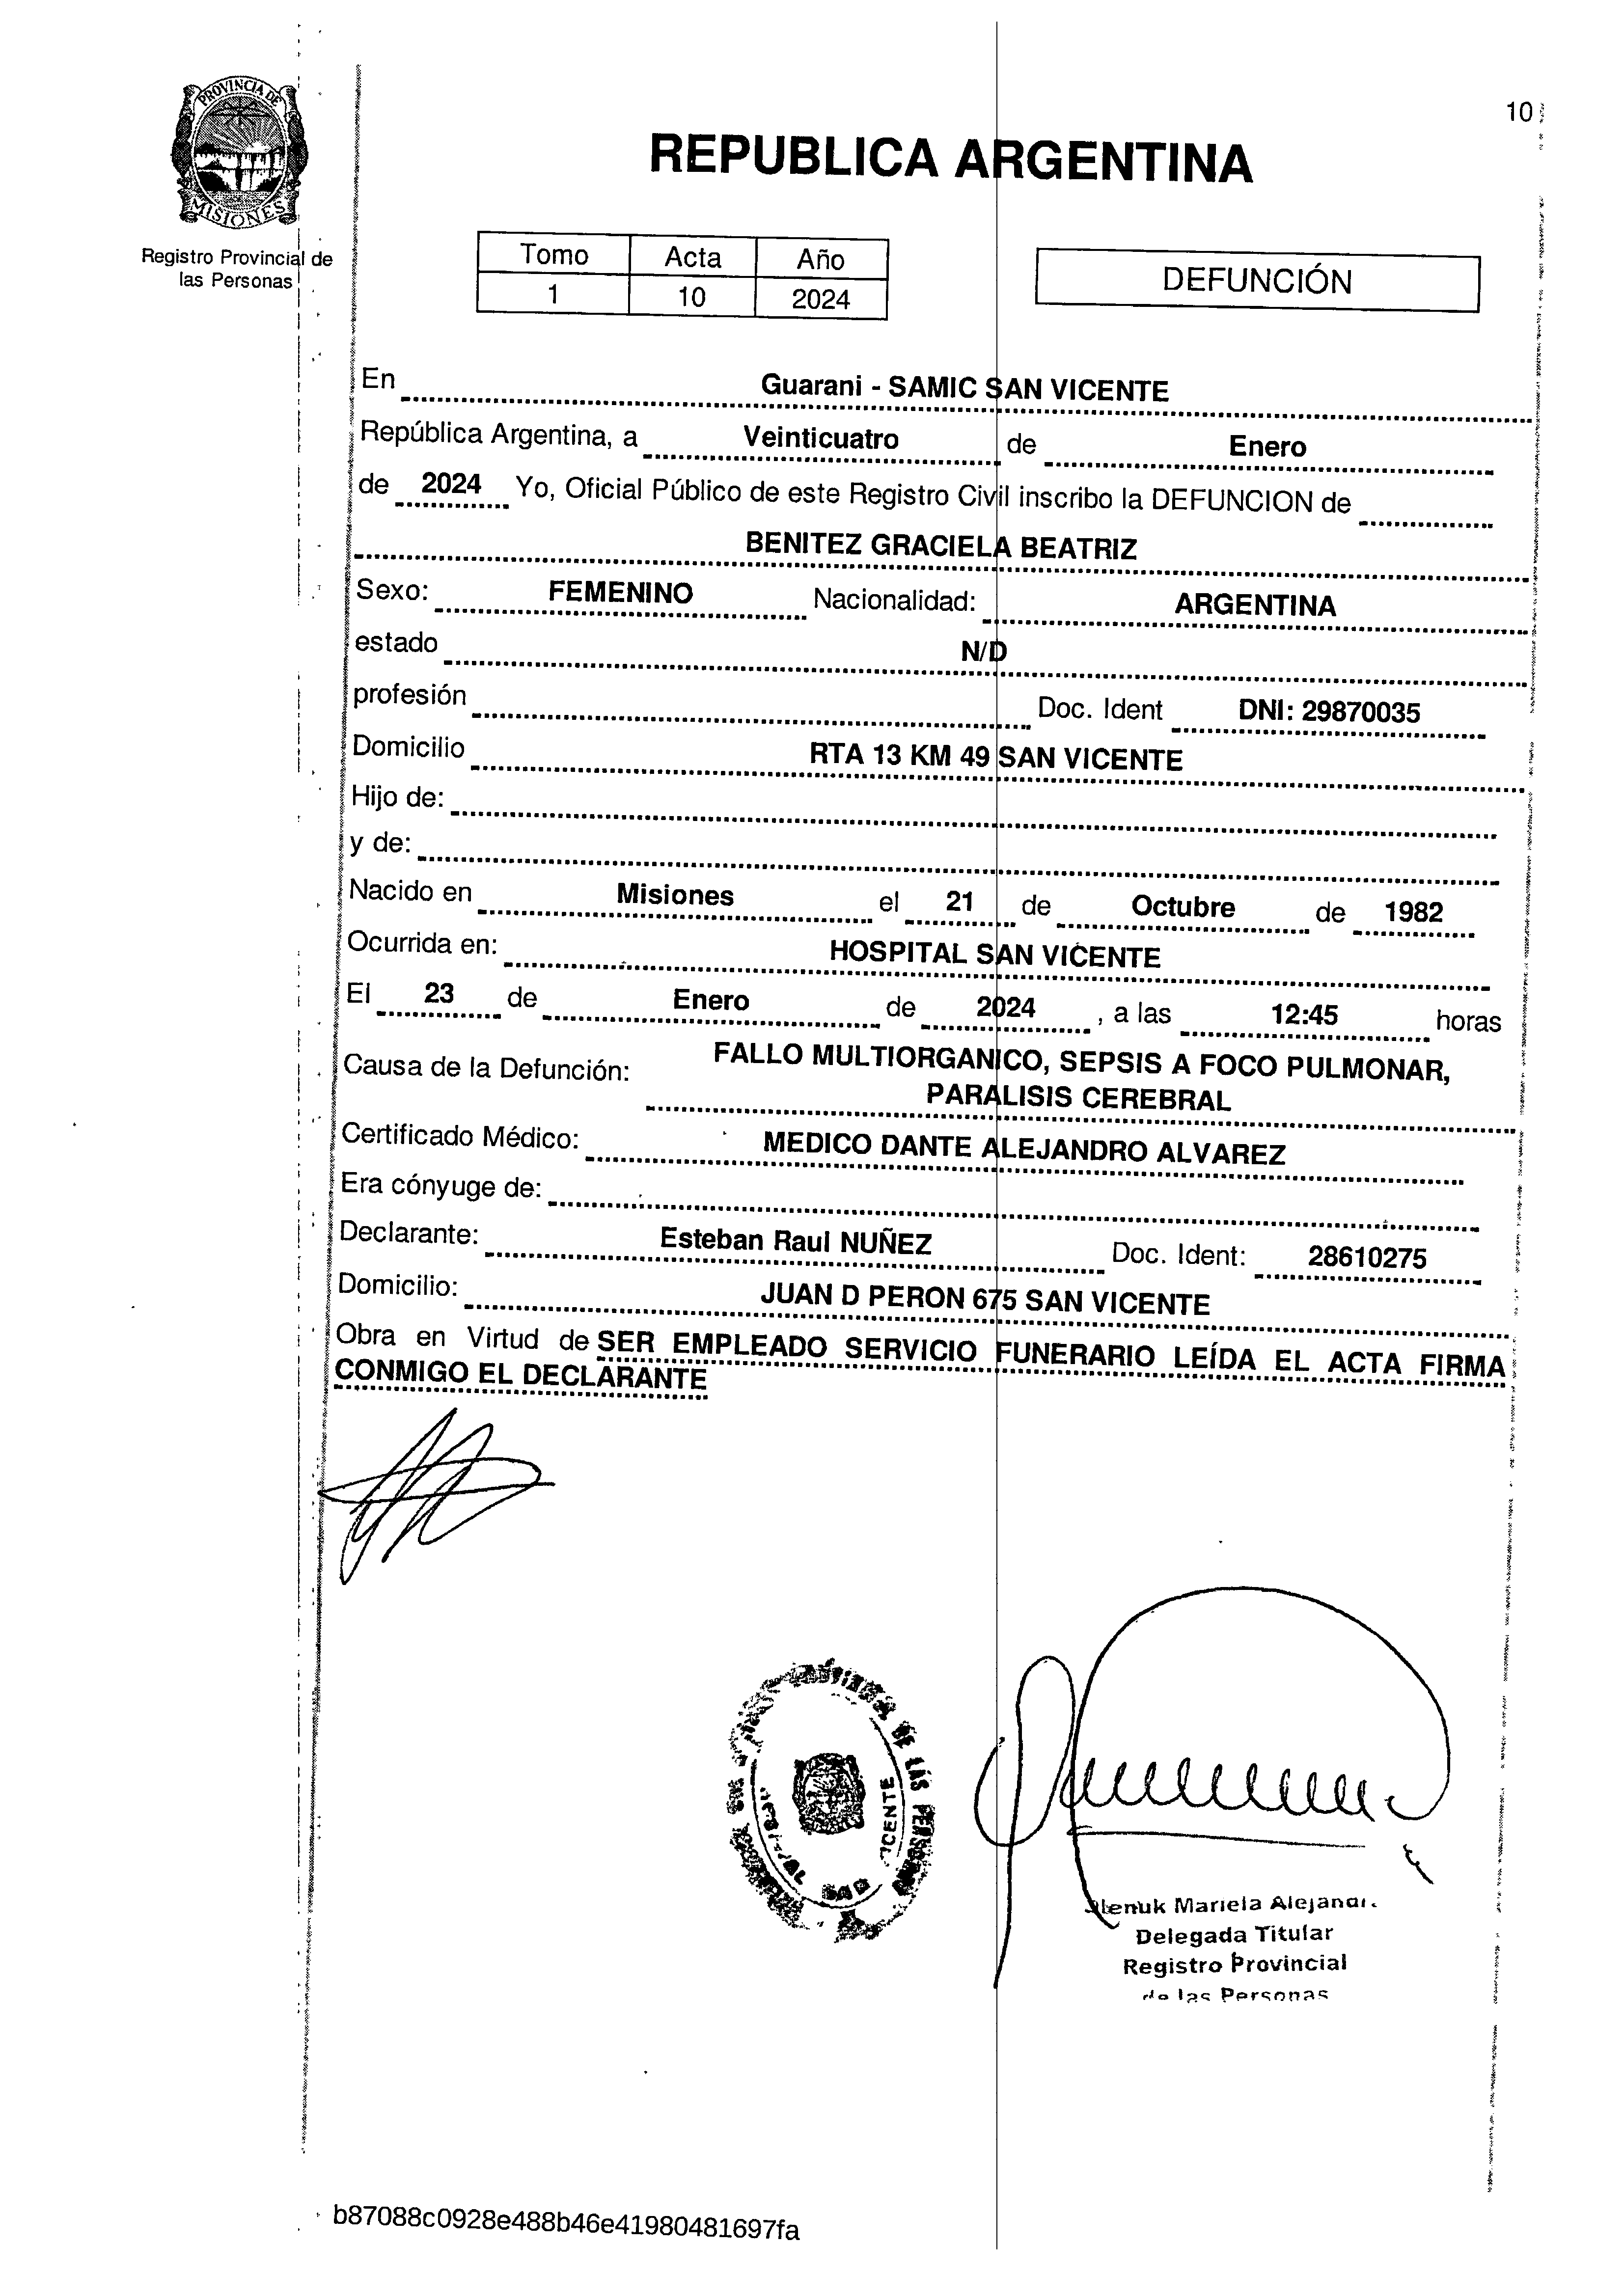 PROVINCIA DE
MISIONES
Registro Provincial de
las Personas
10
REPUBLICA ARGENTINA
Tomo Acta Año
1 10 2024
DEFUNCIÓN
En Guarani - SAMIC SAN VICENTE
República Argentina, a Veinticuatro de Enero
de 2024 Yo, Oficial Público de este Registro Civil inscribo la DEFUNCION de
BENITEZ GRACIELA BEATRIZ
Sexo: FEMENINO Nacionalidad: ARGENTINA
estado N/D
profesión Doc. Ident DNI: 29870035
Domicilio RTA 13 KM 49 SAN VICENTE
Hijo de:
y de:
Nacido en Misiones el 21 de Octubre de 1982
Ocurrida en: HOSPITAL SAN VICENTE
El 23 de Enero de 2024 , a las 12:45 horas
Causa de la Defunción: FALLO MULTIORGANICO, SEPSIS A FOCO PULMONAR,
PARALISIS CEREBRAL
Certificado Médico: MEDICO DANTE ALEJANDRO ALVAREZ
Era cónyuge de:
Declarante: Esteban Raul NUÑEZ Doc. Ident: 28610275
Domicilio: JUAN D PERON 675 SAN VICENTE
Obra en Virtud de SER EMPLEADO SERVICIO FUNERARIO LEÍDA EL ACTA FIRMA
CONMIGO EL DECLARANTE
DE LAS
Mariela
Delegada Titular
Registro Provincial
de las Personas
b87088c0928e488b46e41980481697fa